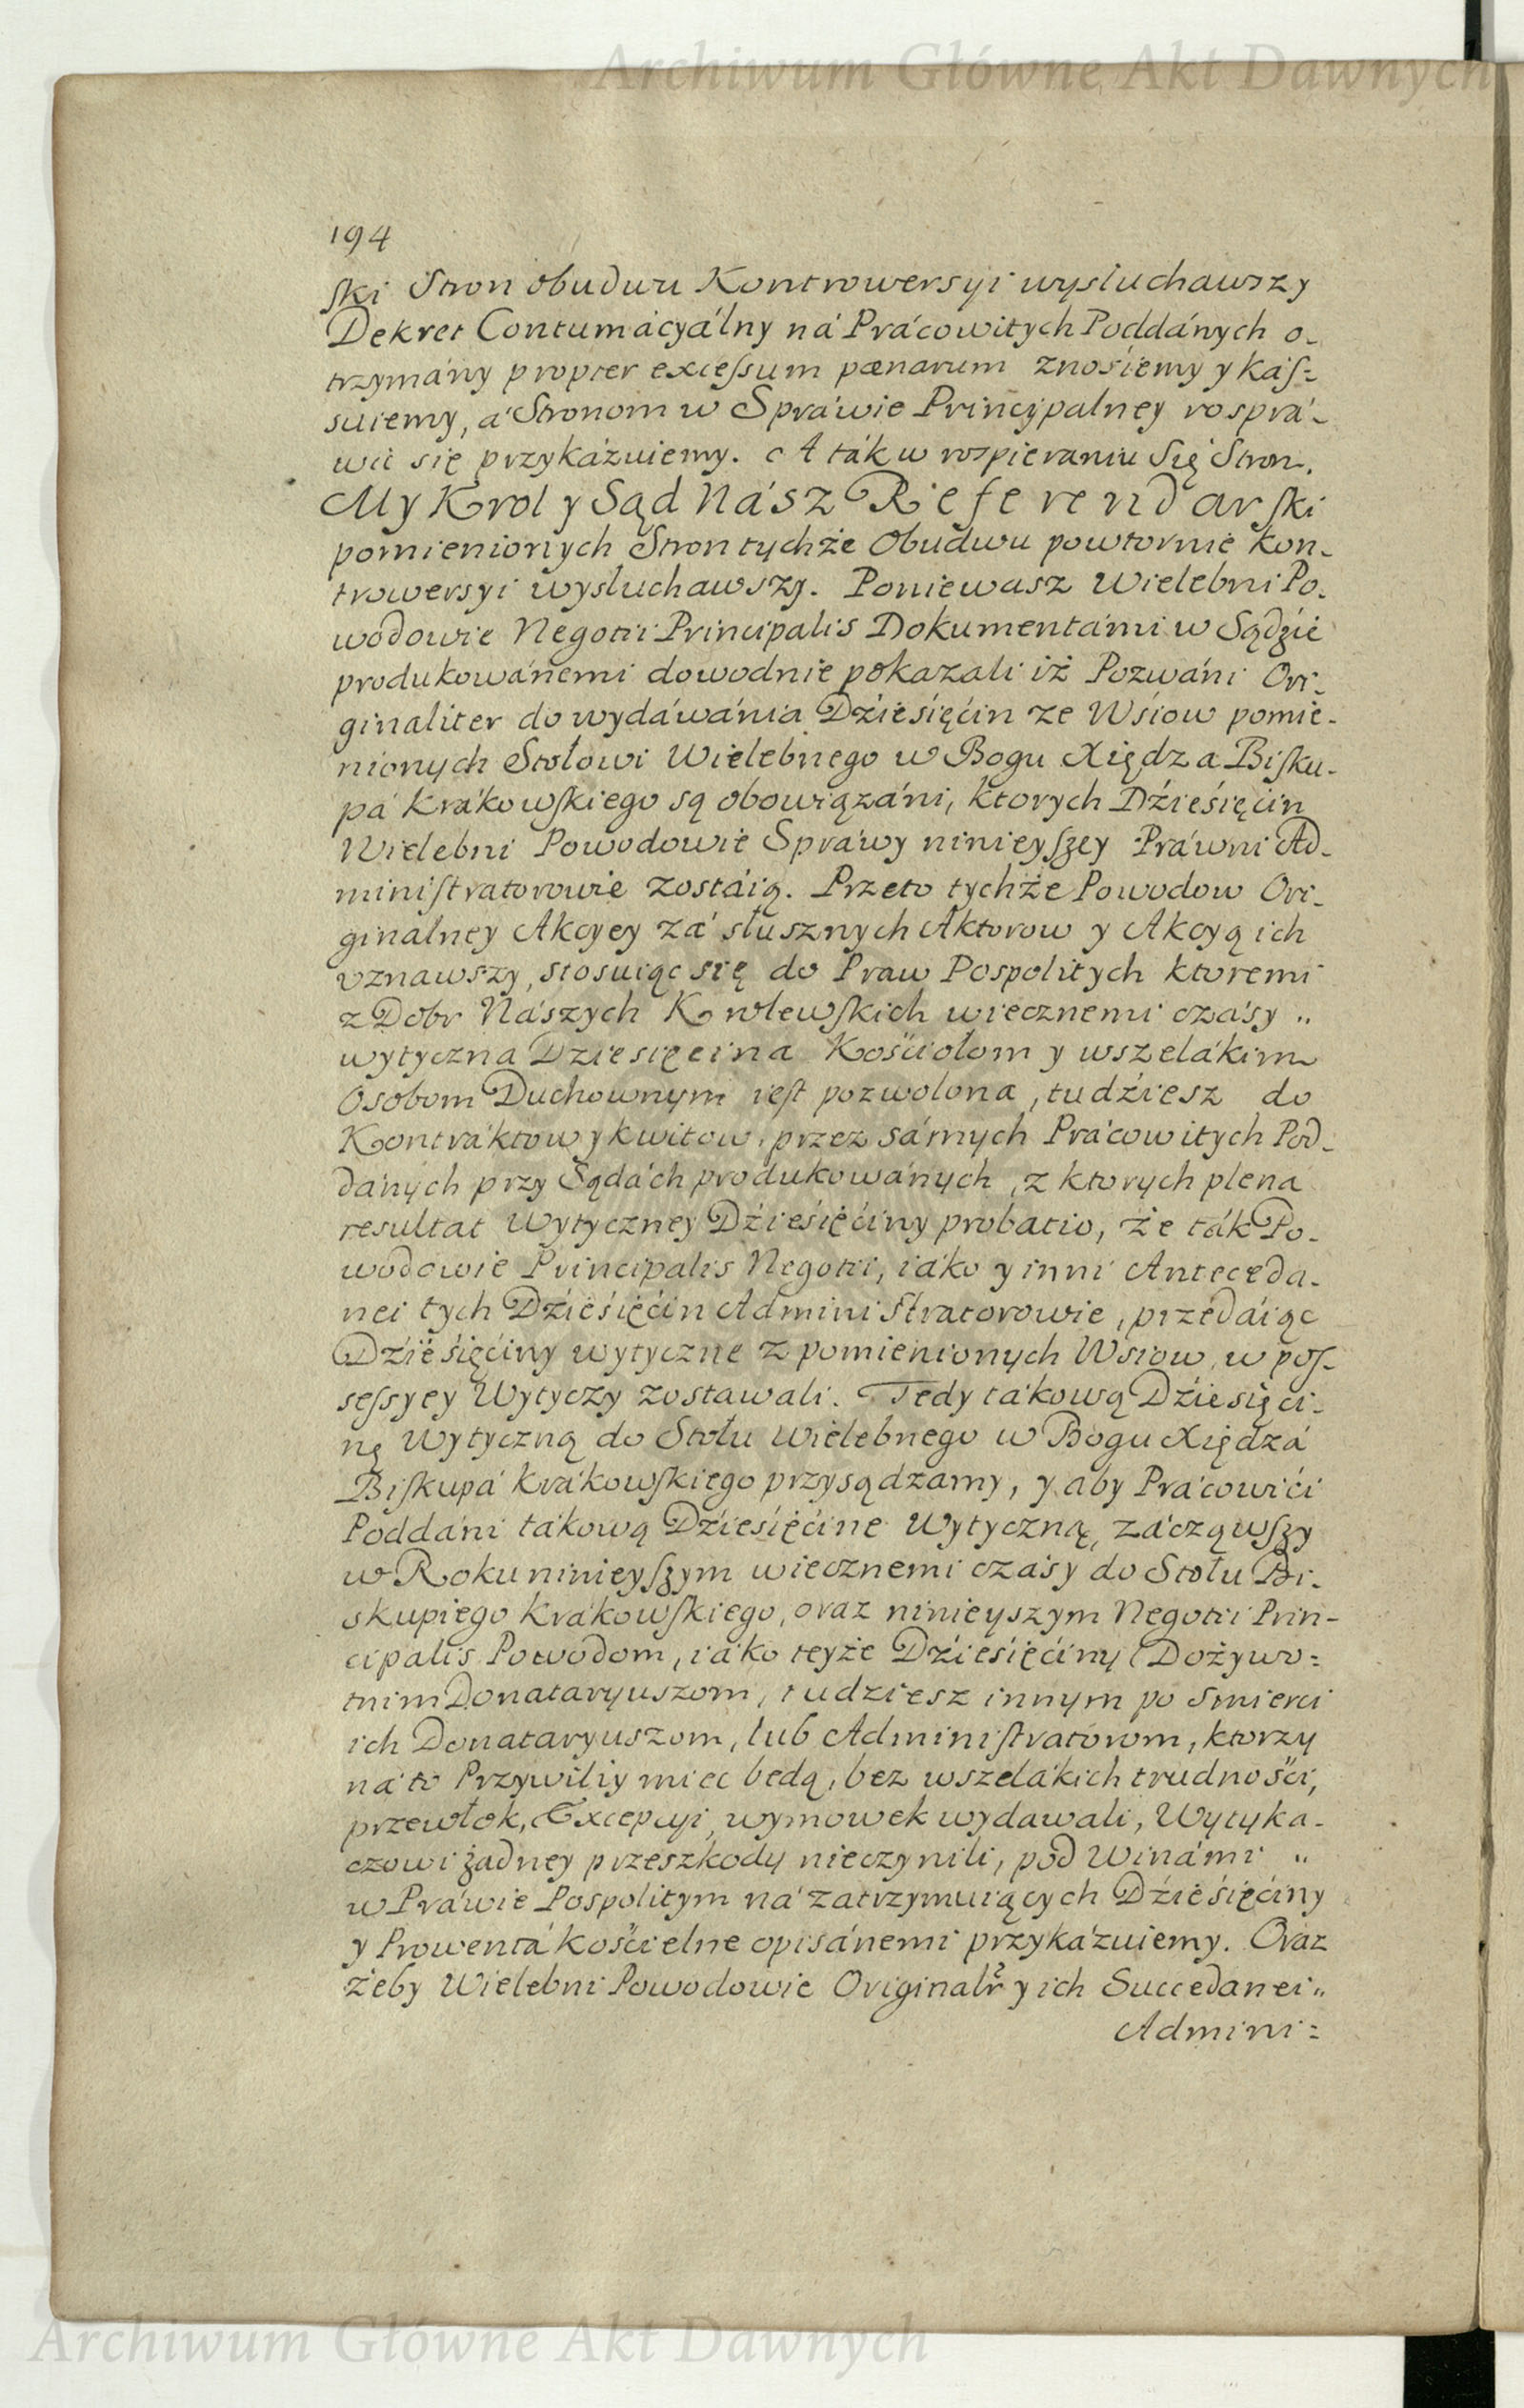 Archiwum Główne Akt Dawnych
194
ski Stron obudwu Kontrowersyi wysłuchawszy
Dekret Contumácyálny ná Prácowitych Poddánych o-
trzymány propter excessum pœnarum znosiemy y kás=
suiemy, á Stronom w Spráwie Principalney rosprá-
wić się przykázuiemy. A ták w rozpieraniu Się Stron,
My Krol y Sąd Nász Referendarski
pomienionych Stron tychże Obudwu powtornie kon-
trowersyi wysłuchawszy. Poniewasz Wielebni Po-
wodowie Negotii Principalis Dokumentámi w Sądzie
produkowánemi dowodnie pokazali iż Pozwáni Ori-
ginaliter do wydáwánia Dźiesięćin ze Wsiow pomie-
nionych Stołowi Wielebnego w Bogu Xiędza Bisku-
pá Krákowskiego są obowiązáni, ktorych Dźieśięćin
Wielebni Powodowie Spráwy ninieyszey Práwni Ad-
ministratorowie zostáią. Przeto tychże Powodow Ori-
ginálney Akcyey zá słusznych Aktorow y Akcyą ich
vznawszy, stosuiąc się do Praw Pospolitych ktoremi
z Dobr Nászych Krolewskich wiecznemi czásy „
wytyczna Dziesięcina Kośćiołom y wszelákim
Osobom Duchownym iest pozwolona, tudźiesz do
Kontráktow y kwitow, przez sámych Prácowitych Pod-
dánych przy Sądách produkowánych, z ktorych plena
resultat Wytyczney Dźieśięćiny probatio, że ták Po-
wodowie Principalis Negotii, iáko y inni Anteceda-
nei tych Dźieśięćin Administratorowie, przedáiąc
Dźieśięćiny wytyczne z pomienionych Wsiow, w pos-
sessyey Wytyczy zostawali. Tedy tákową Dźiesięci-
nę Wytyczną do Stołu Wielebnego w Bogu Xiędzá
Biskupá Krákowskiego przysądzamy, y aby Prácowići
Poddáni tákową Dźiesięćine Wytyczną, zácząwszy
w Roku ninieyszym wiecznemi czásy do Stołu Bi-
skupiego Krákowskiego, oraz ninieyszym Negotii Prin-
cipalis Powodom, iáko teyże Dźiesięćiny Dożywo=
tnim Donataryuszom, tudziesz innym po smierci
ich Donataryuszom, lub Administratorom, ktorzy
ná to Przywiliy miec bedą, bez wszelákich trudnośći,
przewłok, Excepcyi, wymowek wydawali, Wytyka-
czowi żadney przeszkody nieczynili, pod Winámi „
w Práwie Pospolitym ná zatrzymuiących Dźieśięćiny
y Prowentá kośćielne opisánemi przykázuiemy. Oraz
żeby Wielebni Powodowie Originalr y ich Succedanei „
Admini=
Archiwum Główne Akt Dawnych